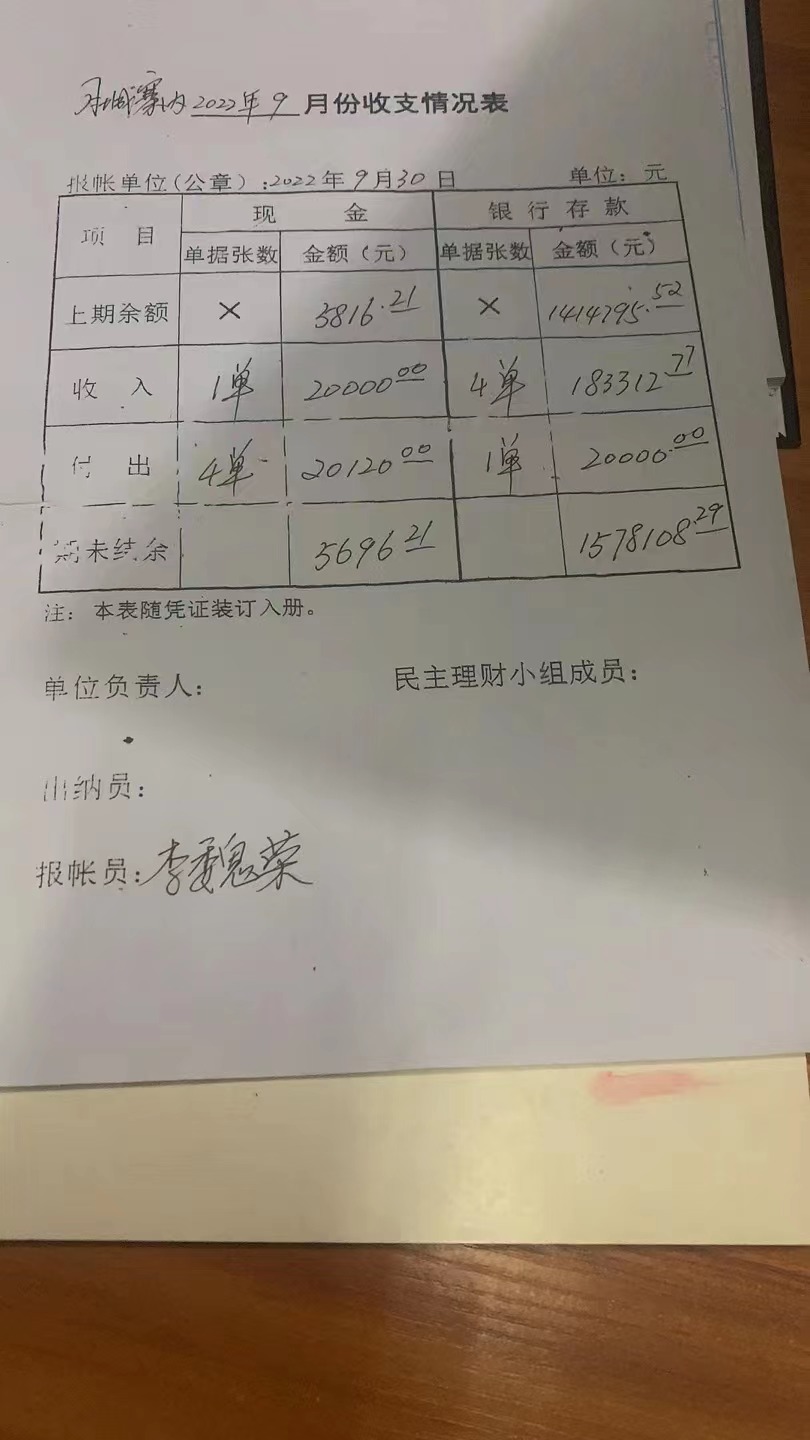 寨内2022年9月份收支情况表
报帐单位(公章):2022年9月30日 单位:元
项目 现金 银行存款
单据张数 金额(元) 单据张数 金额(元)
上期余额 × 5816.21 × 1414795.52
收入 1单 20000.00 4单 183312.77
付出 4单 20120.00 1单 20000.00
期末结余 5696.21 1578108.29
注:本表随凭证装订入册。
单位负责人: 民主理财小组成员:
出纳员:
报帐员:李魏荣